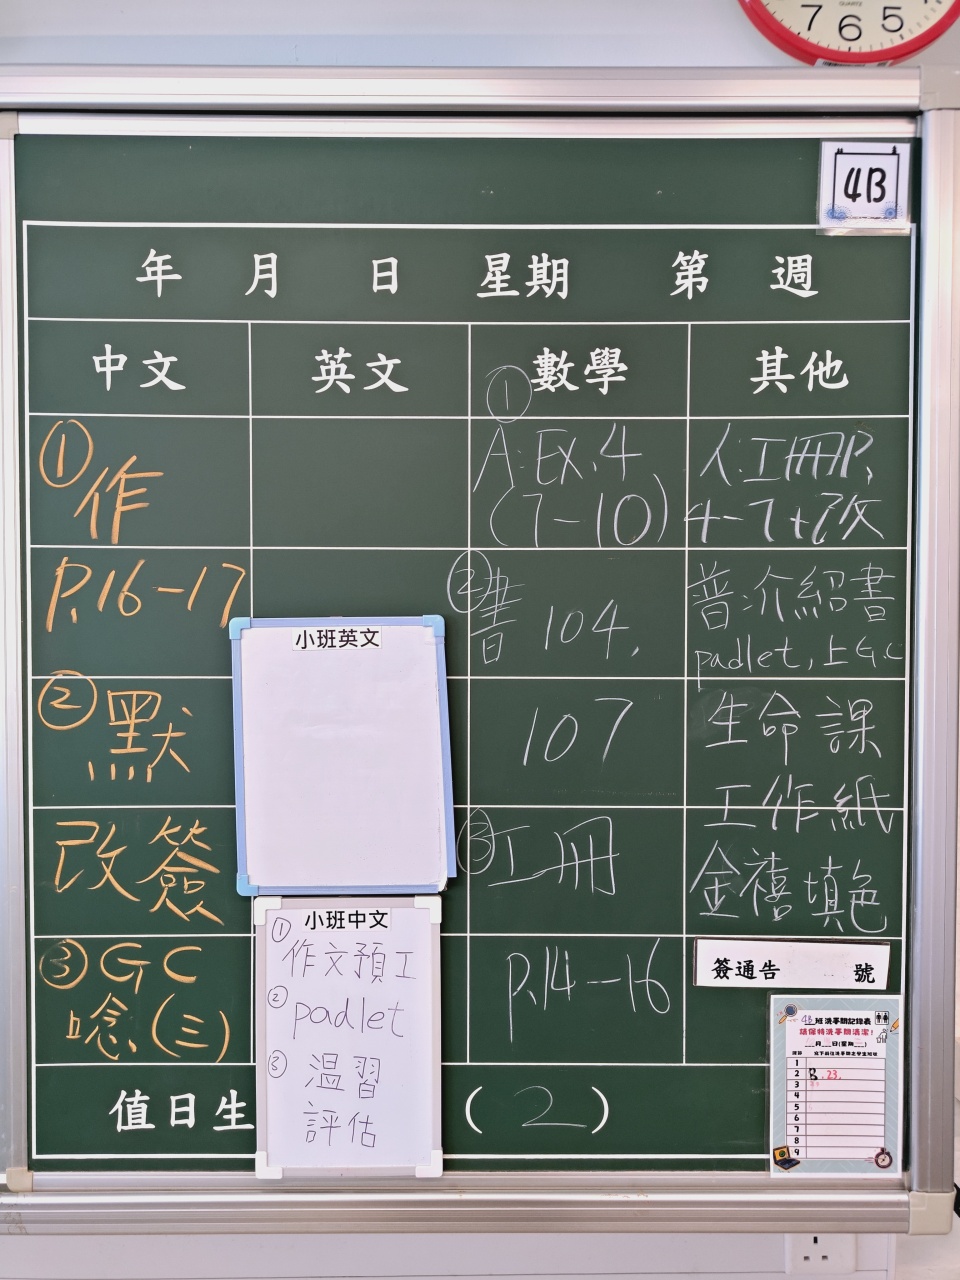 7 6 5
QUARTZ
4B
年 月 日 星期 第 週
中文 英文 數學 其他
① 作
P.16-17
② 默
改簽
③ GC
唸(三)
小班英文
小班中文
① 作文預工
② padlet
③ 溫習
評估
①
A:EX.4
(7-10)
② 書 104,
107
③ 工冊
P.14-16
人:工冊P.
4-7+改
普:介紹書
padlet,上G.C
生命課
工作紙
金禧填色
簽通告 號
4B班洗手間記錄表
請保持洗手間清潔!
月 日(星期 )
1
2 B.23.
3
4
5
6
7
8
9
值日生 ( 2 )